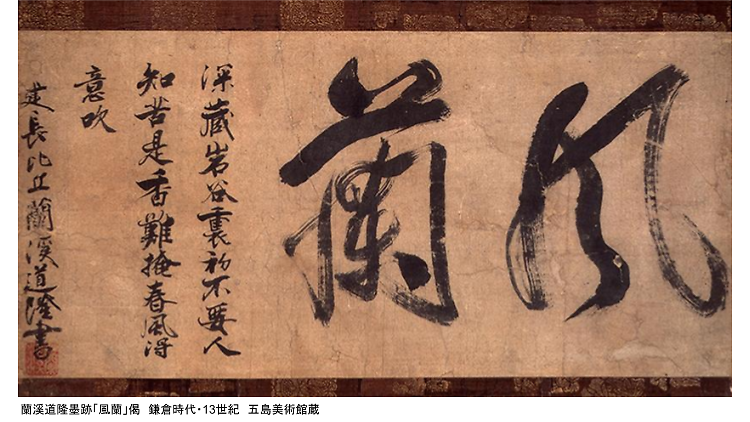 風蘭
深藏岩谷裏初不要人
知苦是香難掩春風得
意吹
建長比丘蘭溪道隆書
蘭溪道隆墨跡「風蘭」偈　鎌倉時代・13世紀　五島美術館蔵